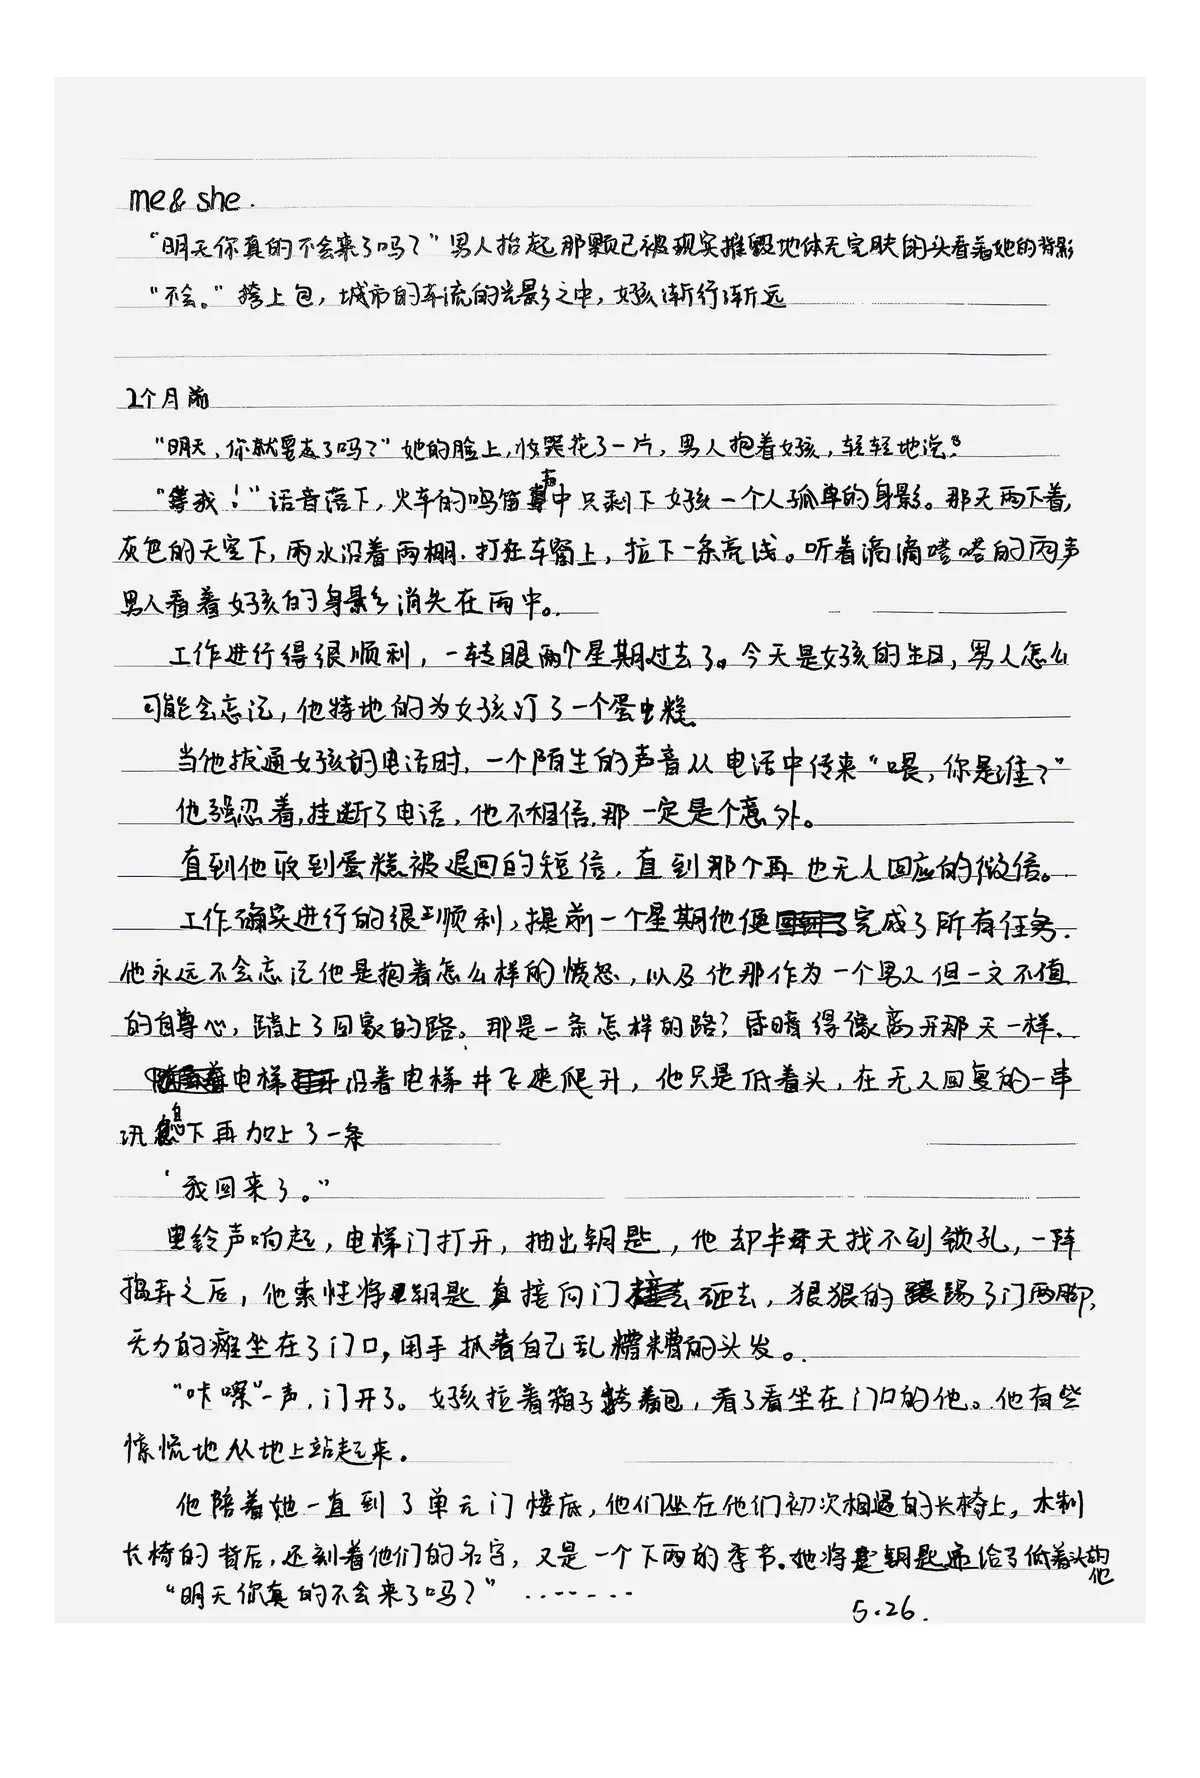 me & she.
“明天你真的不会来了吗？”男人抬起那颗已被现实摧毁地体无完肤的头看着她的背影
“不会。”挎上包，城市的车流的光影之中，女孩渐行渐远
2个月前
“明天，你就要走了吗？”她的脸上，妆哭花了一片，男人抱着女孩，轻轻地说：
“等我！”话音落下，火车的鸣笛声中只剩下女孩一个人孤单的身影。那天雨下着，
灰色的天空下，雨水沿着雨棚.打在车窗上，拉下一条亮线。听着滴滴嗒嗒的雨声
男人看着女孩的身影消失在雨中。
工作进行得很顺利，一转眼两个星期过去了。今天是女孩的生日，男人怎么
可能会忘记，他特地的为女孩订了一个蛋糕
当他拨通女孩的电话时，一个陌生的声音从电话中传来“喂，你是谁？”
他强忍着，挂断了电话，他不相信.那一定是个意外。
直到他收到蛋糕被退回的短信，直到那个再也无人回应的微信。
工作确实进行的很顺利，提前一个星期他便完成了所有任务.
他永远不会忘记他是抱着怎么样的愤怒，以及他那作为一个男人但一文不值
的自尊心，踏上了回家的路。那是一条怎样的路？昏暗得像离开那天一样.
电梯沿着电梯井飞速爬升，他只是低着头，在无人回复的一串
讯息下再加上了一条
‘我回来了。”
电铃声响起，电梯门打开，抽出钥匙，他却半天找不到锁孔，一阵
捣弄之后，他索性将钥匙直接向门砸去，狠狠的踢了门两脚，
无力的瘫坐在了门口，用手抓着自己乱糟糟的头发。
“咔嚓”一声，门开了。女孩拉着箱子挎着包，看了看坐在门口的他。他有些
惊慌地从地上站起来。
他陪着她一直到了单元门楼底，他们坐在他们初次相遇的长椅上。木制
长椅的背后，还刻着他们的名字，又是一个下雨的季节。她将钥匙递给了低着头的他
“明天你真的不会来了吗？”.......
5.26.